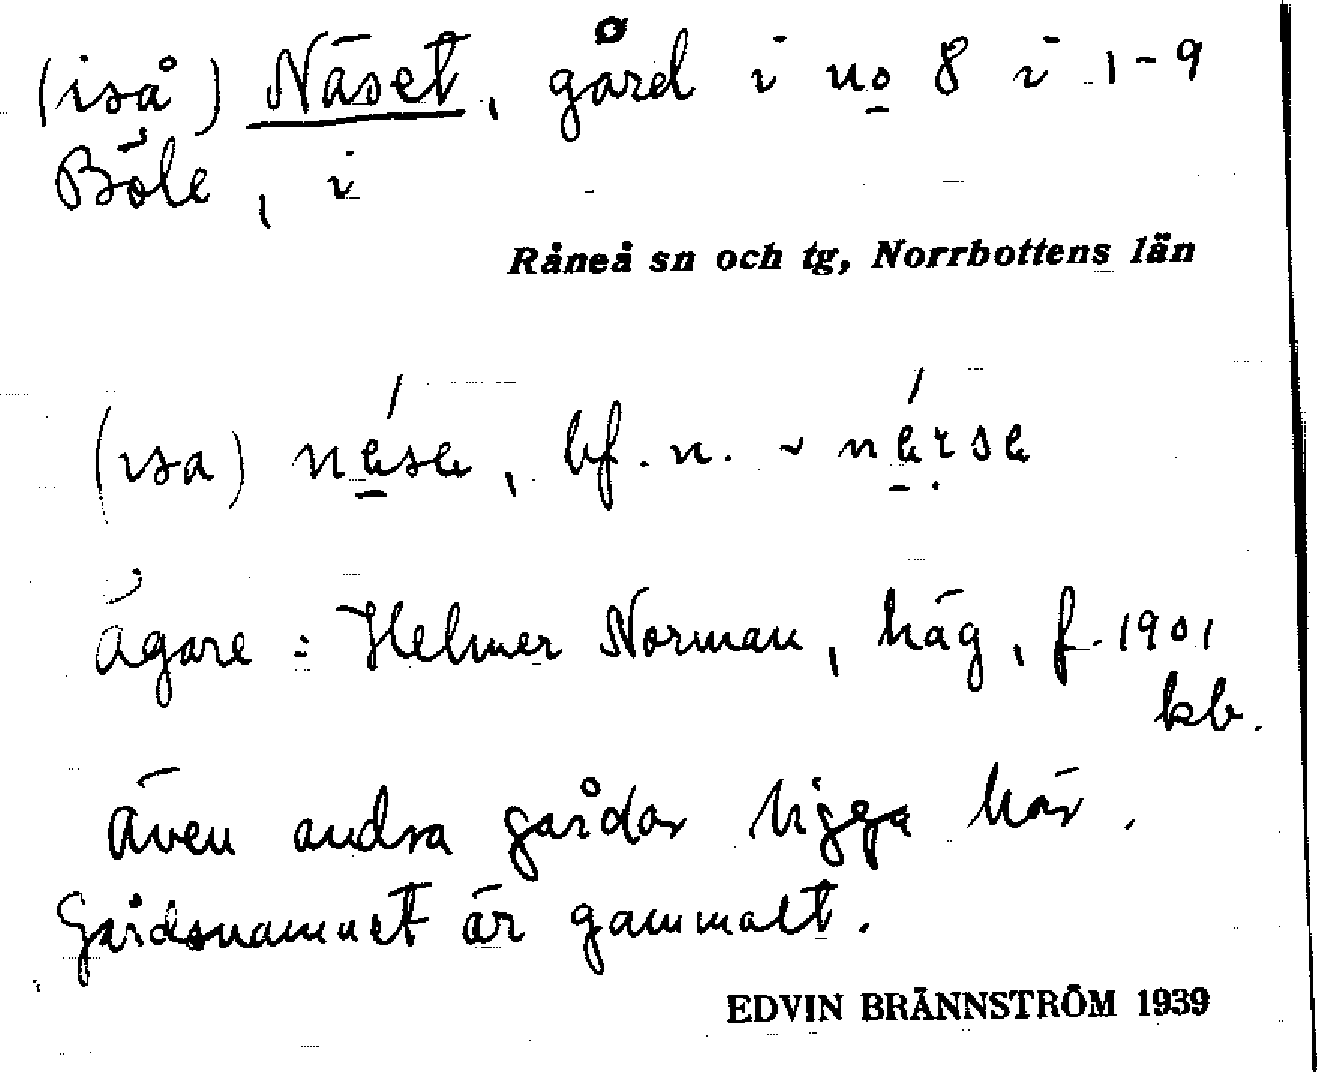 (iså) Näset, gård i no 8 i 1-9
Böle, i
Råneå sn och tg, Norrbottens län
(isa) bf. n. ~
ägare: Helmer Norman, häg, f. 1901
kb.
Även andra gårdar ligga här.
Gårdsnamnet är gammalt.
EDVIN BRÄNNSTRÖM 1939